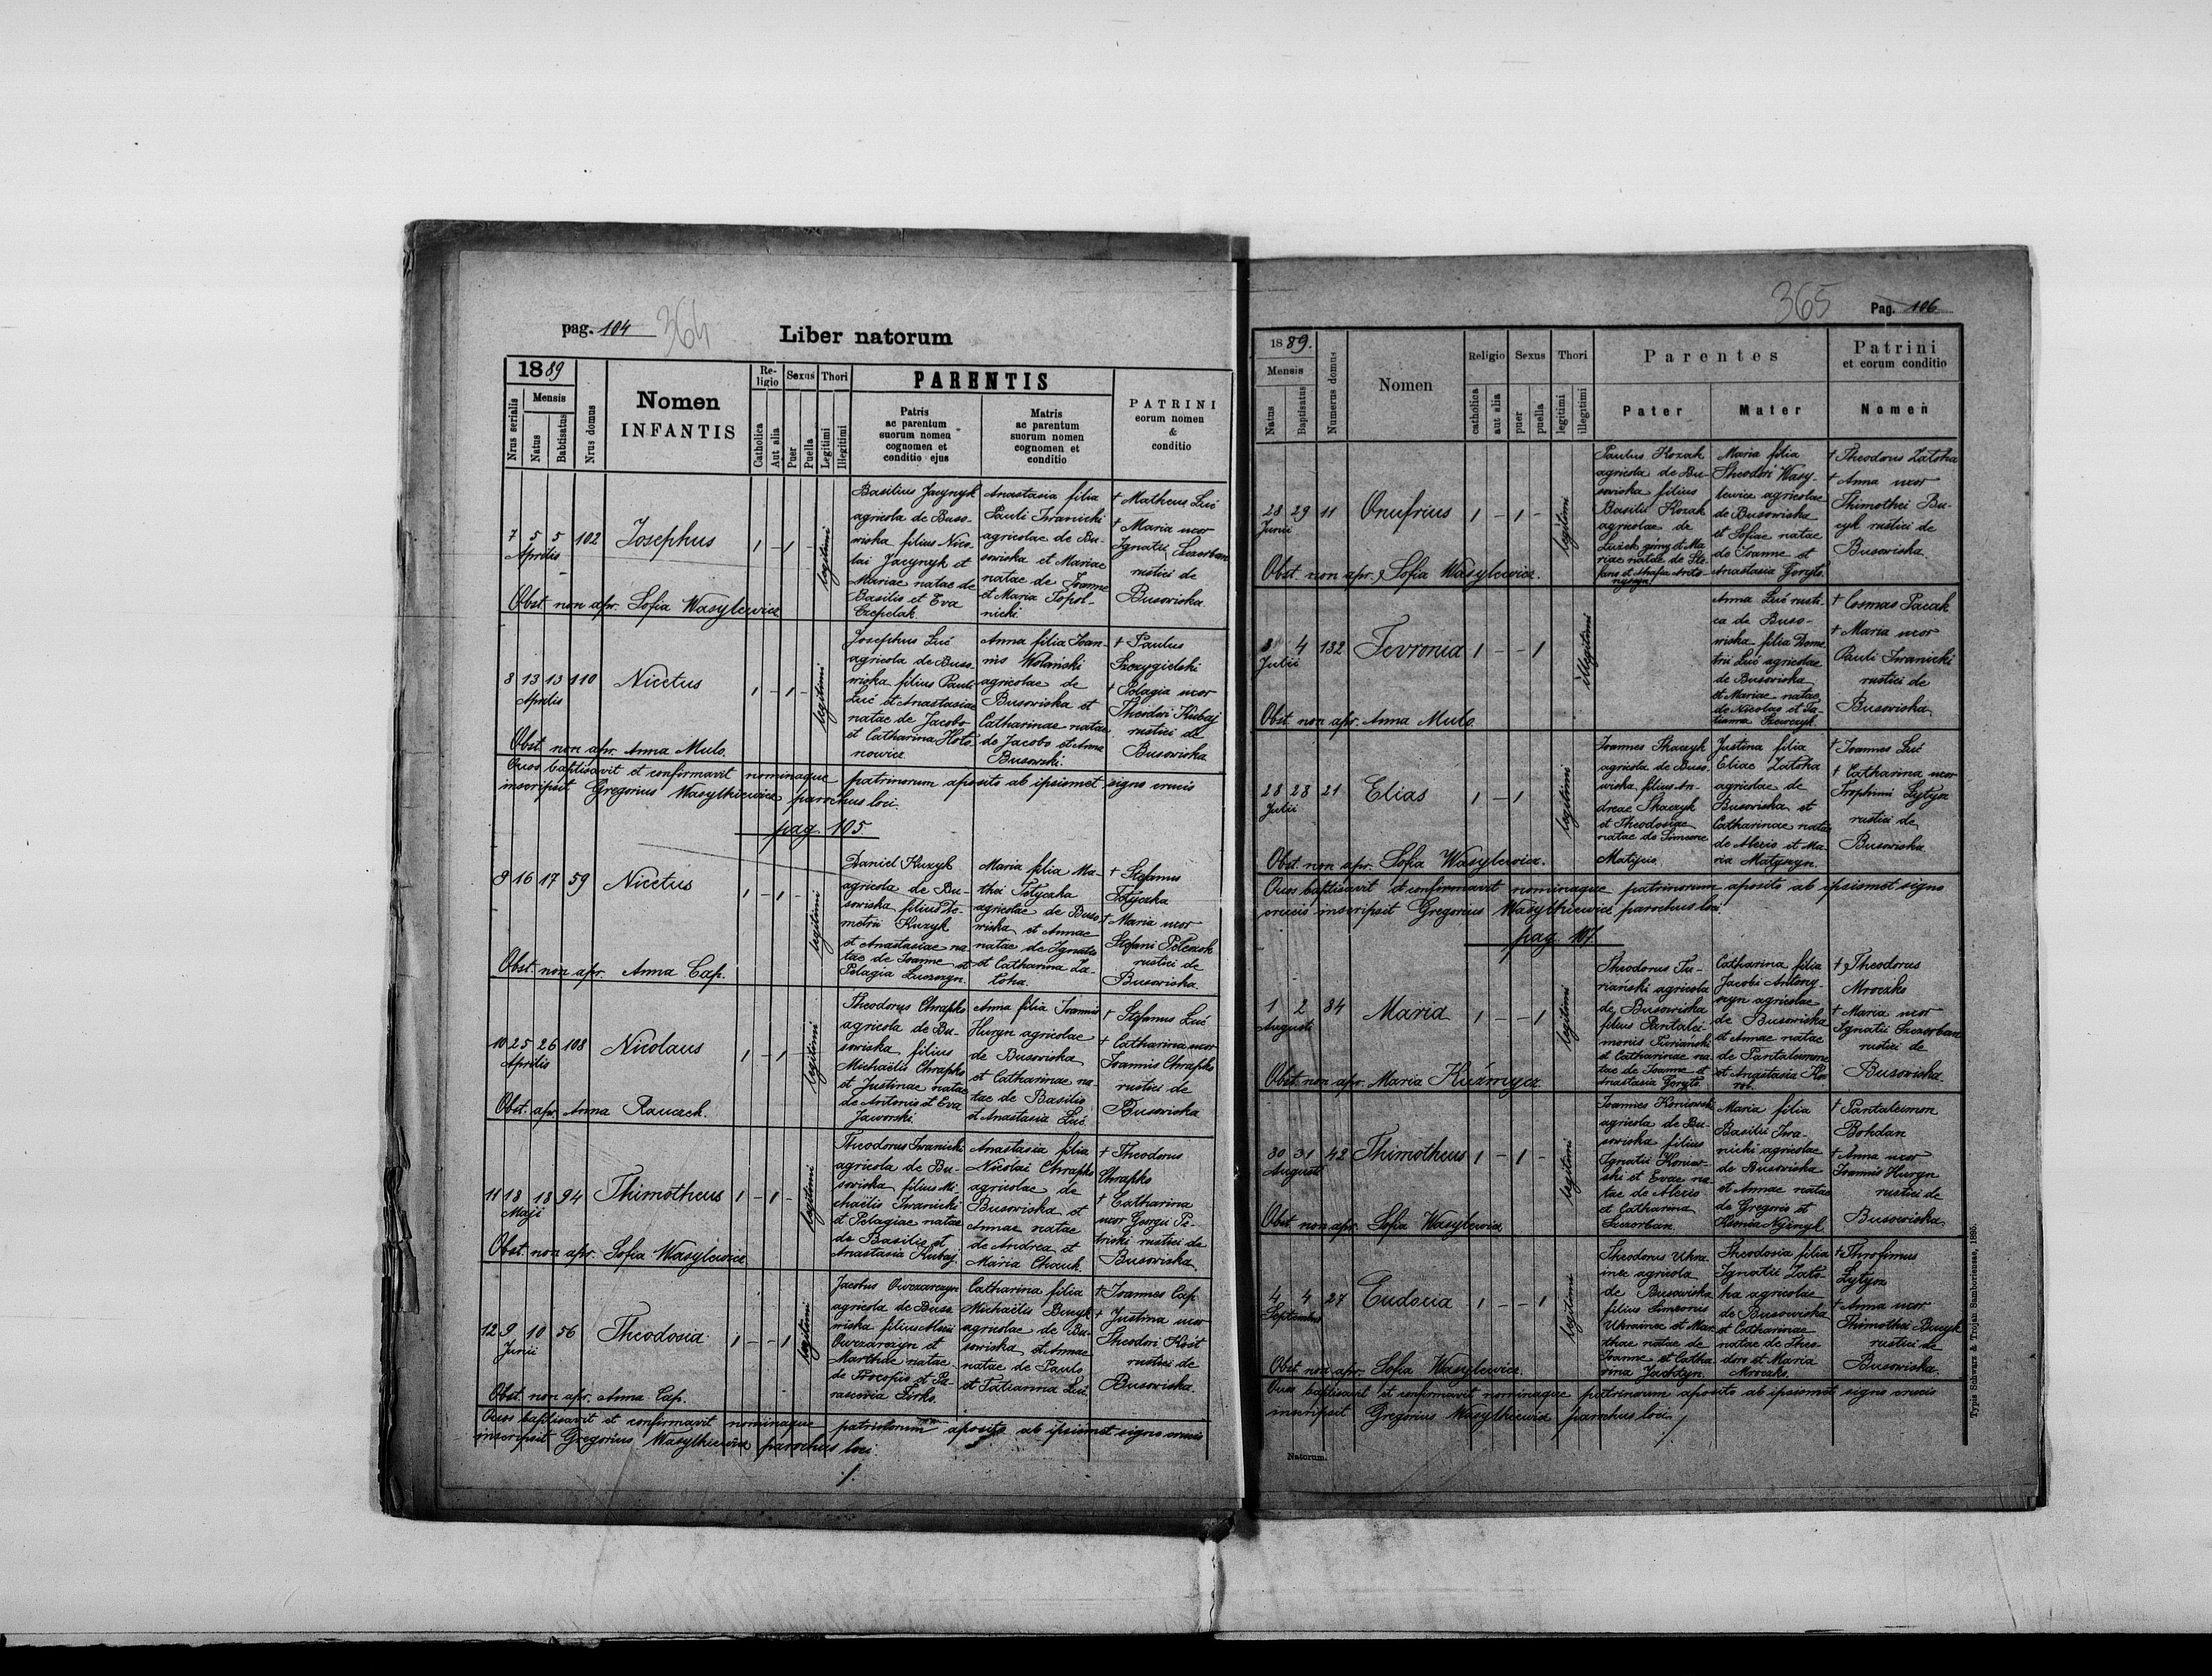 pag. 104 364
Liber natorum
1889
Nrus serialis
Mensis
Natus
Babtisatus
Nrus domus
Nomen
INFANTIS
Re-
ligio
Catholica
Aut alia
Sexus
Puer
Puella
Thori
Legitimi
Illegitimi
PARENTIS
Patris
ac parentum
suorum nomen
cognomen et
conditio ejus
Matris
ac parentum
suorum nomen
cognomen et
conditio
PATRINI
eorum nomen
&
conditio
7 5 5 102 Josephus 1 - 1 - legitimi
Aprilis
Basilius Jacynyk
agricola de Buso-
wiska filius Nico-
lai Jacynyk et
Mariae natae de
Basilio et Eva
Czepelak.
Anastasia filia
Pauli Iwanicki
agricolae de Bu-
sowiska et Mariae
natae de Joanne
et Maria Topol-
nicki.
† Matheus Luć
† Maria uxor
Ignatii Szczerban
rustici de
Busowiska
Obst. non apr. Sofia Wasylewicz
8 13 13 110 Nicetus 1 - 1 - legitimi
Aprilis
Josephus Luć
agricola de Buso-
wiska filius Pauli
Luć et Anastasiae
natae de Jacobo
et Catharina Hoło-
nowicz.
Anna filia Ioan-
nis Wolański
agricolae de
Busowiska et
Catharinae natae
de Jacobo et Anna
Busowski.
† Paulus
Szczygielski
† Pelagia uxor
Theodori Kubaj
rustici de
Busowiska
Obst. non apr. Anna Mulo.
Quos baptisavit et confirmavit nominaque patrinorum aposito ab ipsismet signo crucis
inscripsit Gregorius Wasylkiewicz parochus loci.
pag. 105
9 16 17 59 Nicetus 1 - 1 - legitimi
Daniel Kuzyk
agricola de Bu-
sowiska filius De-
metrii Kuzyk
et Anastasiae na
tae de Joanne et
Pelagia
Maria filia Ma-
thei Tetyczka
agricolae de Buso
wiska et Annae
natae de Ignatio
et Catharina Za-
toha.
† Stefanus
Tetyczka
† Maria uxor
Stefani
rustici de
Busowiska
Obst. non apr. Anna Cap.
10 25 26 108 Nicolaus 1 - 1 - legitimi
Aprilis
Theodorus Chrapko
agricola de Bu-
sowiska filius
Michaëlis Chrapko
et Justinae natae
de Antonio et Eva
Jaworski.
Anna filia Ioannis
Huryn agricolae
de Busowiska
et Catharinae na-
tae de Basilio
et Anastasia Luć
† Stefanus Luć
† Catharina uxor
Ioannis Chrapko
rustici de
Busowiska
Obst. apr. Anna Rauczek.
11 18 18 94 Thimotheus 1 - 1 - legitimi
Maji
Theodorus Iwanicki
agricola de Bu-
sowiska filius Mi-
chaëlis Iwanicki
et Pelagiae natae
de Basilio et
Anastasia Kubaj.
Anastasia filia
Nicolai Chrapko
agricolae de
Busowiska et
Annae natae
de Andrea et
Maria
† Theodorus
Chrapko
† Catharina
uxor Georgii Pe-
triski rustici de
Busowiska.
Obst. non apr. Sofia Wasylewicz
12 9 10 56 Theodosia 1 - - 1 legitimi
Junii
Jacobus Owczarczyn
agricola de Buso
wiska filius Alexii
Owczarczyn et
Marthae natae
de Procopio et Pa-
rascevia
Catharina filia
Michaëlis Bucyk
agricolae de Bu-
sowiska et Annae
natae de Paulo
et Tatianna Luć
† Ioannes Cap
† Justina uxor
Theodori Kost
rustici de
Busowiska.
Obst. non apr. Anna Cap.
Quos baptisavit et confirmavit nominaque patrinorum aposito ab ipsismet signo crucis
inscripsit Gregorius Wasylkiewicz parochus loci.
365 Pag. 106
1889.
Mensis
Natus
Baptisatus
Numerus domus
Nomen
Religio
catholica
aut alia
Sexus
puer
puella
Thori
legitimi
illegitimi
Parentes
Pater
Mater
Patrini
et eorum conditio
Nomen
28 29 11 Onufrius 1 - 1 - legitimi
Junii
Paulus Kozak
agricola de Bu-
sowiska filius
Basilii Kozak
agricolae de
Łużek górny et Ma
riae natae de Ste-
fano et
Maria filia
Theodori Wasy-
lewicz agricolae
de Busowiska
et Sofiae natae
de Ioanne et
Anastasia Goryło.
† Theodorus Zatoha
† Anna uxor
Thimothei Bu-
cyk rustici de
Busowiska.
Obst. non apr. Sofia Wasylewicz.
3 4 132 Fevronia 1 - - 1 illegitimi
Julii
Anna Luć rusti-
ca de Buso-
wiska filia Deme
trii Luć agricolae
de Busowiska
et Mariae natae
de Nicolao et Ta-
tianna Szewczyk.
† Cosmas Pacak
† Maria uxor
Pauli Iwanicki
rustici de
Busowiska
Obst. non apr. Anna Mulo.
28 28 21 Elias 1 - 1 legitimi
Julii
Ioannes Tkaczyk
agricola de Buso
wiska filius An-
dreae Tkaczyk
et Theodosiae
natae de Simeone
Matycio.
Justina filia
Eliae Zatoha
agricolae de
Busowiska et
Catharinae natae
de Alexio et Ma-
ria
† Ioannes Luć
† Catharina uxor
Trophimi Łytycz
rustici de
Busowiska.
Obst. non apr. Sofia Wasylewicz.
Quos baptisavit et confirmavit nominaque patrinorum aposito ab ipsismet signo
crucis inscripsit Gregorius Wasylkiewicz parochus loci.
pag. 107
1 2 84 Maria 1 - - 1 legitimi
Augusti
Theodorus Tu-
riański agricola
de Busowiska
filius Pantalei-
monis Turiański
et Catharinae na-
tae de Ioanne et
Anastasia Goryło.
Catharina filia
Jacobi Antony-
szyn agricolae
de Busowiska
et Annae natae
de Pantaleimone
et Anastasia
† Theodorus
Mroczko
† Maria uxor
Ignatii Szczerban
rustici de
Busowiska.
Obst. non apr. Maria Kuźmycz
30 31 42 Thimotheus 1 - 1 - legitimi
Augusti
Ioannes Koniowski
agricola de Bu-
sowiska filius
Ignatii Koniow-
ski et Evae na-
tae de Alexio
et Catharina
Szczerban.
Maria filia
Basilii Iwa-
nicki agricolae
de Busowiska
et Annae natae
de Gregorio et
† Pantaleimon
Bohdan
† Anna uxor
Ioannis Huryn
rustici de
Busowiska
Obst. non apr. Sofia Wasylewicz
4 4 27 Eudocia 1 - - 1 legitimi
Septembris
Theodorus Ukra
inec agricola
de Busowiska
filius Simeonis
Ukrainec et Mar-
thae natae de
Ioanne et Catha
rina
Theodosia filia
Ignatii Zato-
ha agricolae
de Busowiska
et Catharinae
natae de Theo-
doro et Maria
Mroczko.
† Throfimus
Łytycz
† Anna uxor
Thimothei Bucyk
rustici de
Busowiska.
Obst. non apr. Sofia Wasylewicz.
Quos baptisavit et confirmavit nominaque patrinorum aposito ab ipsismet signo crucis
inscripsit Gregorius Wasylkiewicz parochus loci.
Natorum.
Typis Schwarz & Trojan Samborienses, 1895.